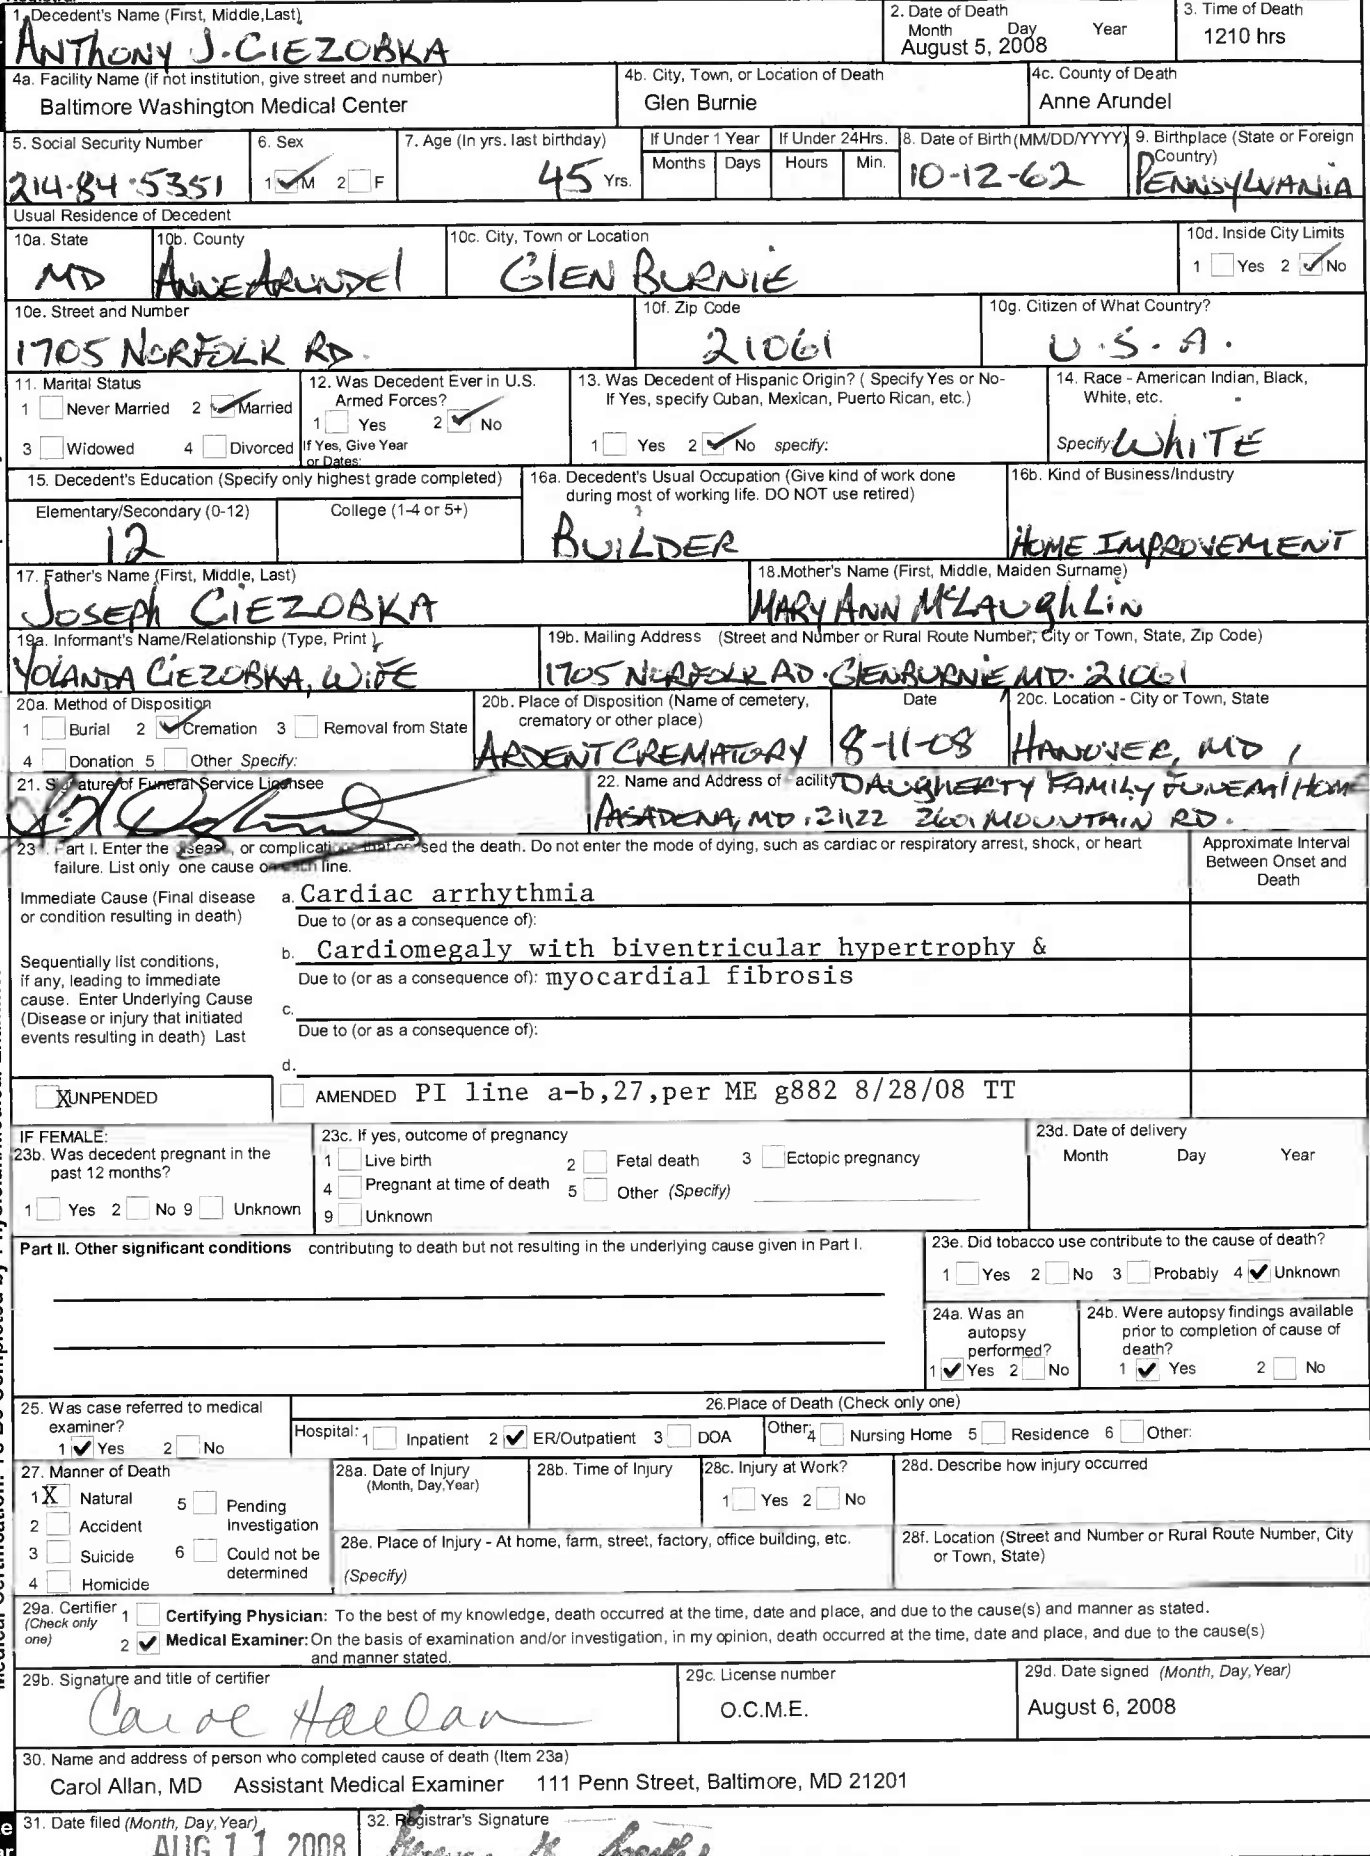 1. Decedent's Name (First, Middle,Last)
ANTHONY J. CIEZOBKA
2. Date of Death
Month Day Year
August 5, 2008
3. Time of Death
1210 hrs
4a. Facility Name (if not institution, give street and number)
Baltimore Washington Medical Center
4b. City, Town, or Location of Death
Glen Burnie
4c. County of Death
Anne Arundel
5. Social Security Number
214-84-5351
6. Sex
1 ✓ M 2 F
7. Age (In yrs. last birthday)
45 Yrs.
If Under 1 Year
Months Days
If Under 24Hrs.
Hours Min.
8. Date of Birth (MM/DD/YYYY)
10-12-62
9. Birthplace (State or Foreign
Country)
PENNSYLVANIA
Usual Residence of Decedent
10a. State
MD
10b. County
ANNE ARUNDEL
10c. City, Town or Location
GLEN BURNIE
10d. Inside City Limits
1 Yes 2 ✓ No
10e. Street and Number
1705 NORFOLK RD.
10f. Zip Code
21061
10g. Citizen of What Country?
U.S.A.
11. Marital Status
1 Never Married 2 ✓ Married
3 Widowed 4 Divorced
12. Was Decedent Ever in U.S.
Armed Forces?
1 Yes 2 ✓ No
If Yes, Give Year
or Dates:
13. Was Decedent of Hispanic Origin? ( Specify Yes or No-
If Yes, specify Cuban, Mexican, Puerto Rican, etc.)
1 Yes 2 ✓ No specify:
14. Race - American Indian, Black,
White, etc.
Specify: WHITE
15. Decedent's Education (Specify only highest grade completed)
Elementary/Secondary (0-12)
12
College (1-4 or 5+)
16a. Decedent's Usual Occupation (Give kind of work done
during most of working life. DO NOT use retired)
BUILDER
16b. Kind of Business/Industry
HOME IMPROVEMENT
17. Father's Name (First, Middle, Last)
JOSEPH CIEZOBKA
18.Mother's Name (First, Middle, Maiden Surname)
MARY ANN McLAUGHLIN
19a. Informant's Name/Relationship (Type, Print )
YOLANDA CIEZOBKA, WIFE
19b. Mailing Address (Street and Number or Rural Route Number, City or Town, State, Zip Code)
1705 NORFOLK RD. GLENBURNIE MD. 21061
20a. Method of Disposition
1 Burial 2 ✓ Cremation 3 Removal from State
4 Donation 5 Other Specify:
20b. Place of Disposition (Name of cemetery,
crematory or other place)
ARDENT CREMATORY
Date
8-11-08
20c. Location - City or Town, State
HANOVER, MD
21. Signature of Funeral Service Licensee
22. Name and Address of Facility DAUGHERTY FAMILY FUNERAL HOME
PASADENA, MD. 21122 2601 MOUNTAIN RD.
23 . Part I. Enter the disease, or complications that caused the death. Do not enter the mode of dying, such as cardiac or respiratory arrest, shock, or heart
failure. List only one cause on each line.
Approximate Interval
Between Onset and
Death
Immediate Cause (Final disease
or condition resulting in death)
a. Cardiac arrhythmia
Due to (or as a consequence of):
b. Cardiomegaly with biventricular hypertrophy &
Due to (or as a consequence of): myocardial fibrosis
Sequentially list conditions,
if any, leading to immediate
cause. Enter Underlying Cause
(Disease or injury that initiated
events resulting in death) Last
c.
Due to (or as a consequence of):
d.
X UNPENDED
AMENDED PI line a-b,27,per ME g882 8/28/08 TT
IF FEMALE:
23b. Was decedent pregnant in the
past 12 months?
1 Yes 2 No 9 Unknown
23c. If yes, outcome of pregnancy
1 Live birth 2 Fetal death 3 Ectopic pregnancy
4 Pregnant at time of death 5 Other (Specify)
9 Unknown
23d. Date of delivery
Month Day Year
Part II. Other significant conditions contributing to death but not resulting in the underlying cause given in Part I.
23e. Did tobacco use contribute to the cause of death?
1 Yes 2 No 3 Probably 4 ✓ Unknown
24a. Was an
autopsy
performed?
1 ✓ Yes 2 No
24b. Were autopsy findings available
prior to completion of cause of
death?
1 ✓ Yes 2 No
25. Was case referred to medical
examiner?
1 ✓ Yes 2 No
26.Place of Death (Check only one)
Hospital: 1 Inpatient 2 ✓ ER/Outpatient 3 DOA Other: 4 Nursing Home 5 Residence 6 Other:
27. Manner of Death
1 X Natural 5 Pending
Investigation
2 Accident
3 Suicide 6 Could not be
determined
4 Homicide
28a. Date of Injury
(Month, Day,Year)
28b. Time of Injury
28c. Injury at Work?
1 Yes 2 No
28d. Describe how injury occurred
28e. Place of Injury - At home, farm, street, factory, office building, etc.
(Specify)
28f. Location (Street and Number or Rural Route Number, City
or Town, State)
29a. Certifier
(Check only
one)
1 Certifying Physician: To the best of my knowledge, death occurred at the time, date and place, and due to the cause(s) and manner as stated.
2 ✓ Medical Examiner: On the basis of examination and/or investigation, in my opinion, death occurred at the time, date and place, and due to the cause(s)
and manner stated.
29b. Signature and title of certifier
29c. License number
O.C.M.E.
29d. Date signed (Month, Day, Year)
August 6, 2008
30. Name and address of person who completed cause of death (Item 23a)
Carol Allan, MD Assistant Medical Examiner 111 Penn Street, Baltimore, MD 21201
31. Date filed (Month, Day, Year)
AUG 11 2008
32. Registrar's Signature